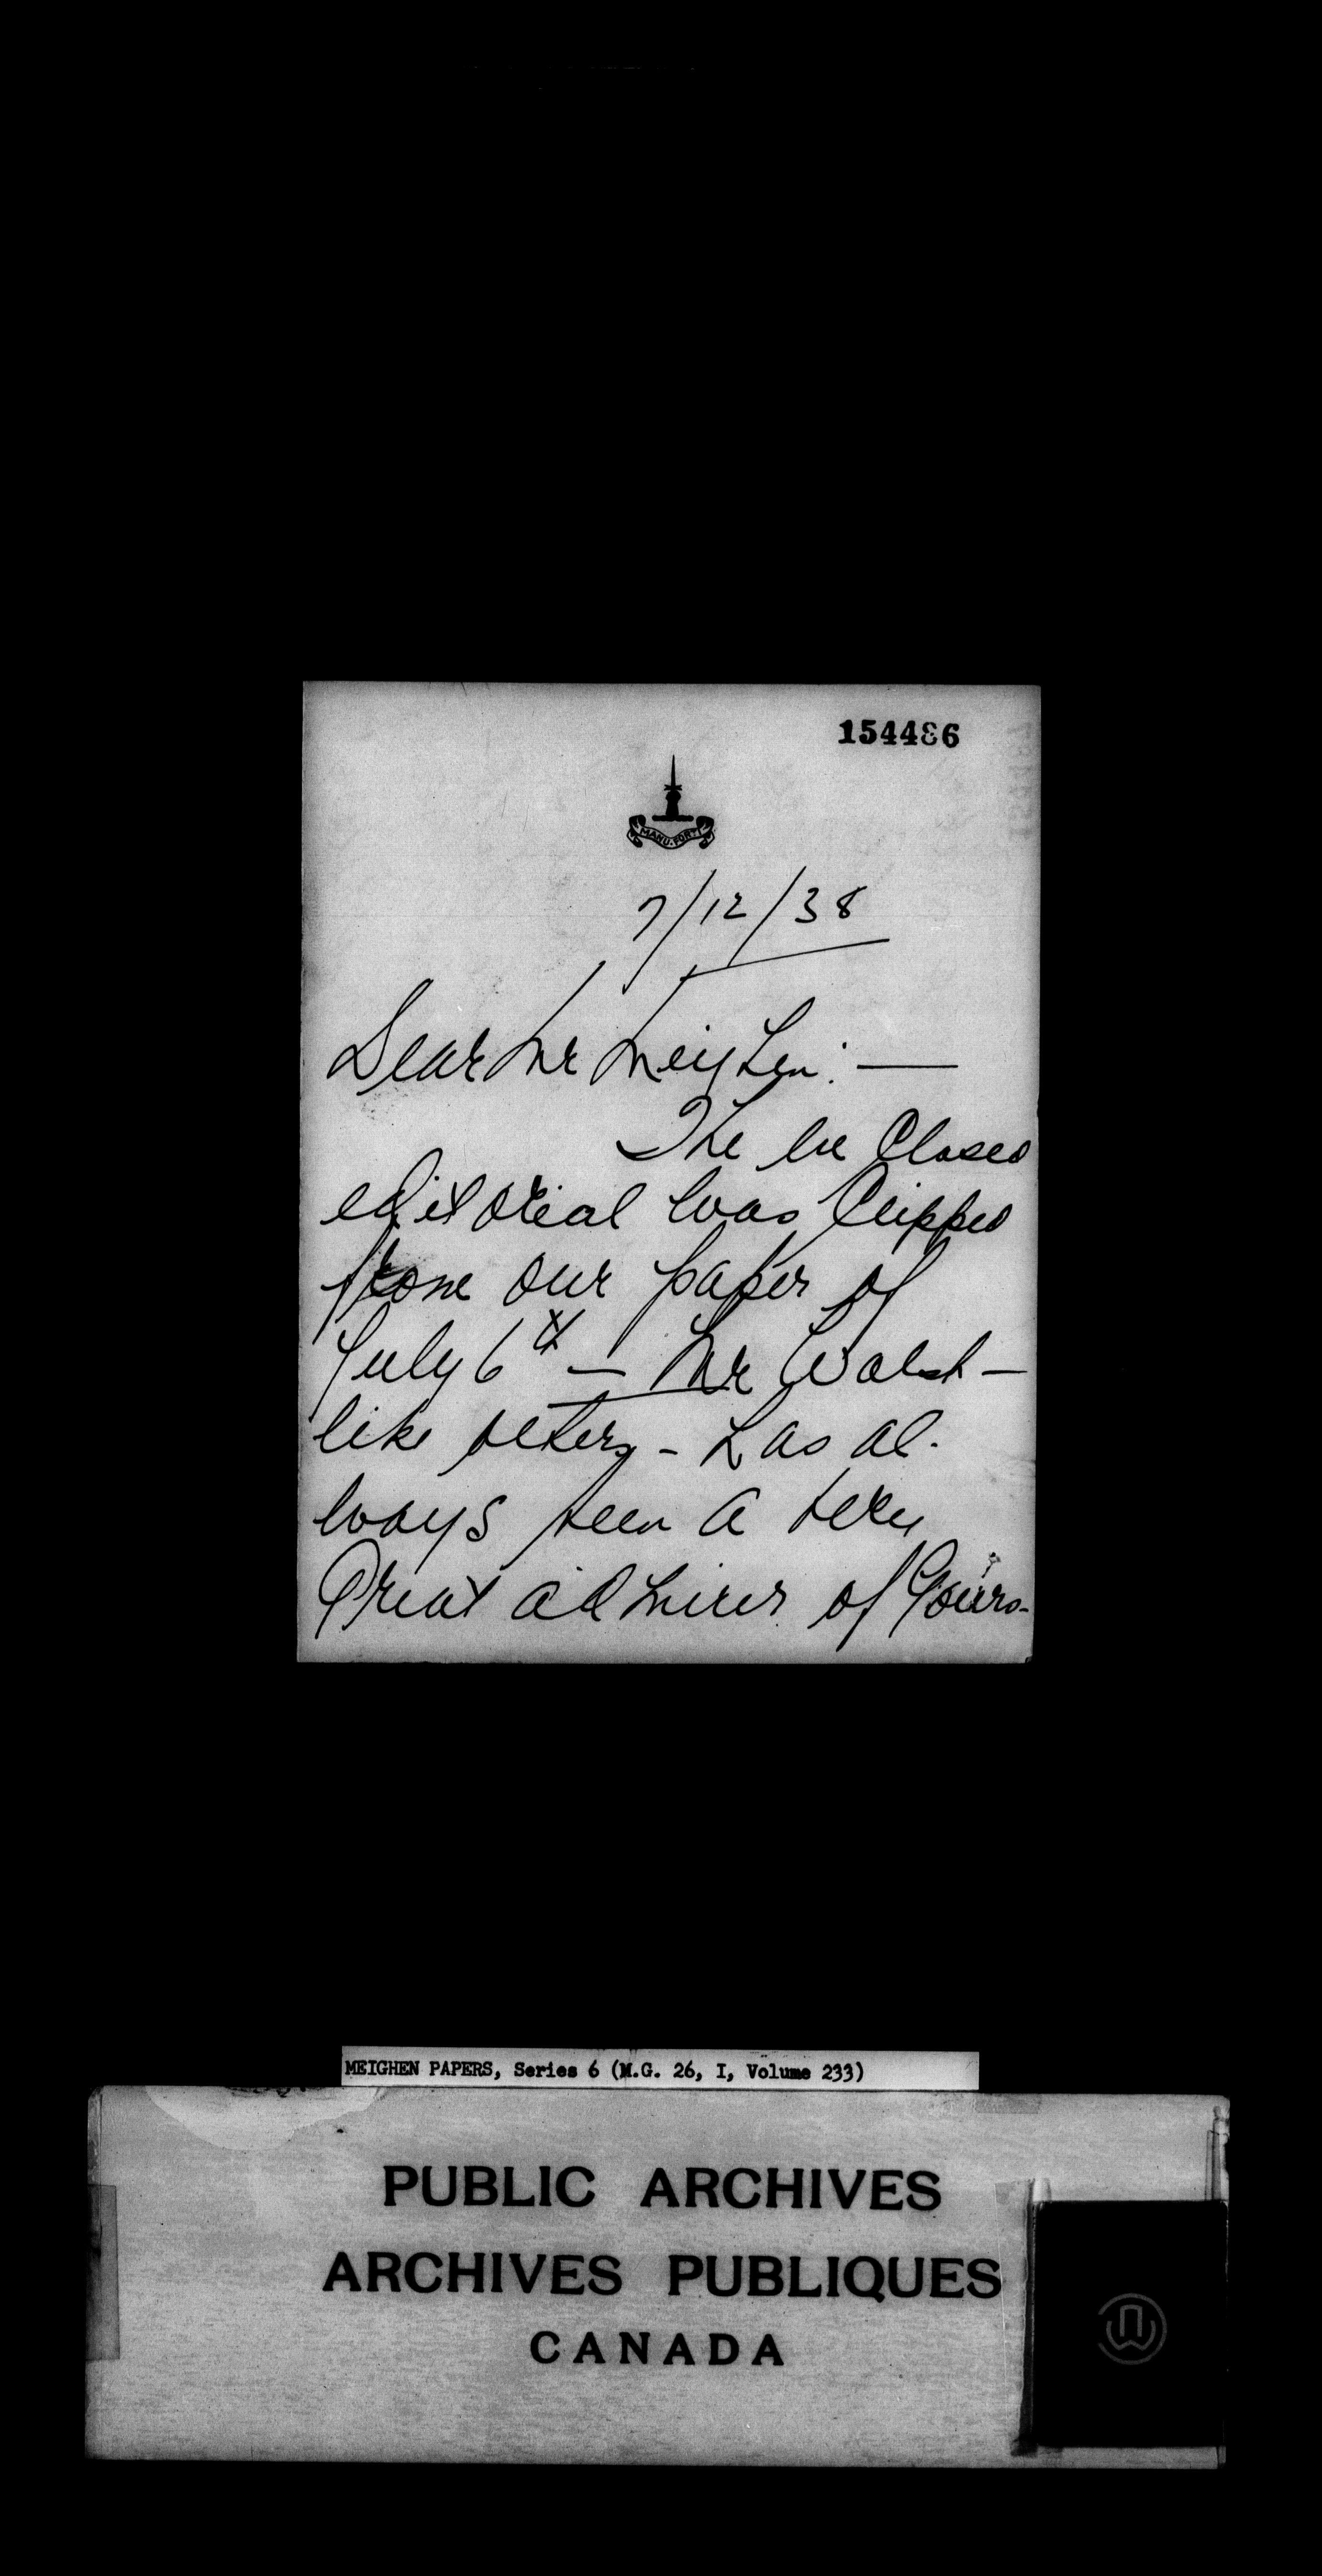 154486
MANU FORTI
7/12/38
Dear Mr Meighen: —
The enclosed
editorial was clipped
from our paper of
July 6th — Mr Walsh —
like others - has al-
ways been a very
Great admirer of Yours -
MEIGHEN PAPERS, Series 6 (M.G. 26, I, Volume 233)
PUBLIC ARCHIVES
ARCHIVES PUBLIQUES
CANADA